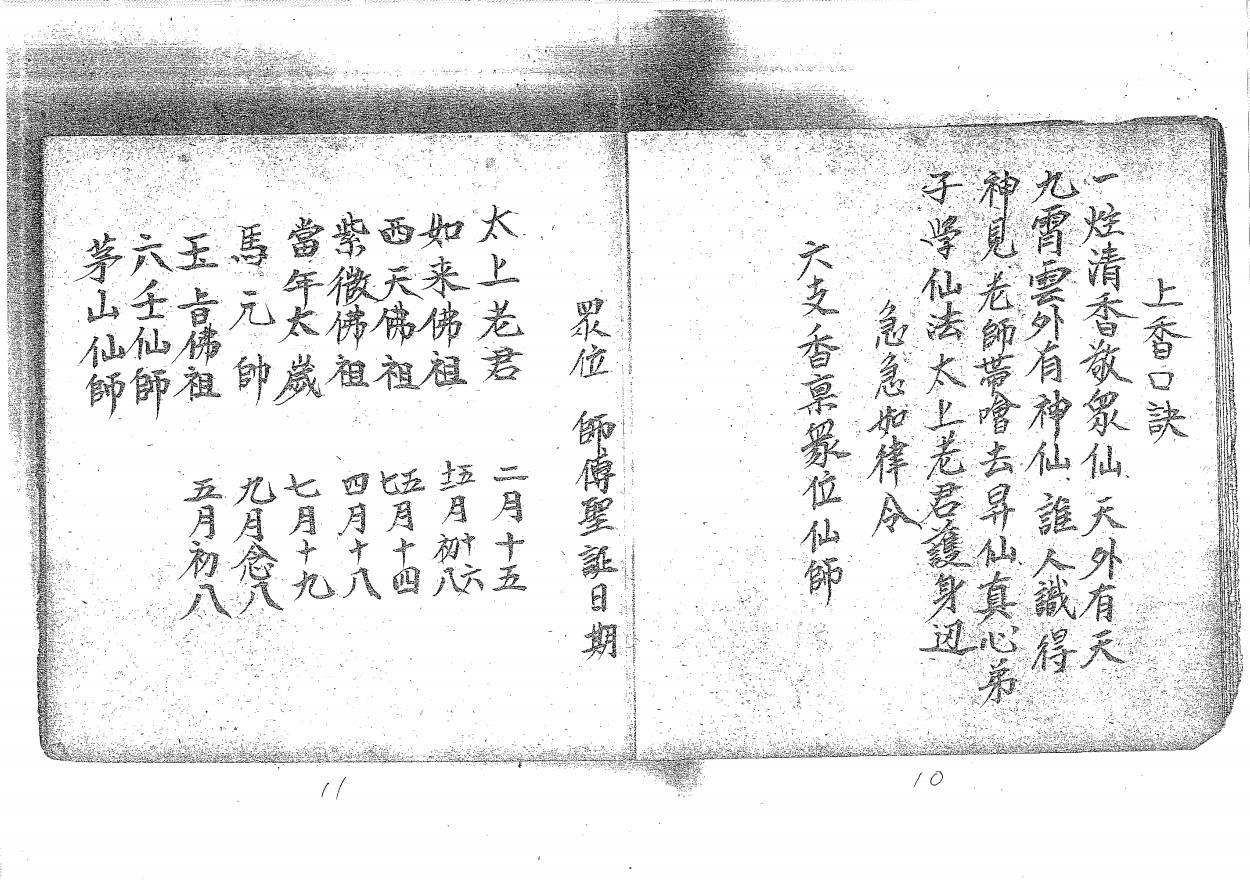 上香口訣
一炷清香敬眾仙天外有天
九霄雲外有神仙誰人識得
神見老師帶嚕去昇仙真心弟
子學仙法太上老君護身边
急急如律令
六支香稟眾位仙師
10
眾位 師傅聖誕日期
太上老君 二月十五
如来佛祖 十五五月十六初八
西天佛祖 五月十四
紫微佛祖 四月十八
當年太歲 七月十九
馬元帥 九月念八
玉旨佛祖 五月初八
六壬仙師
茅山仙師
11